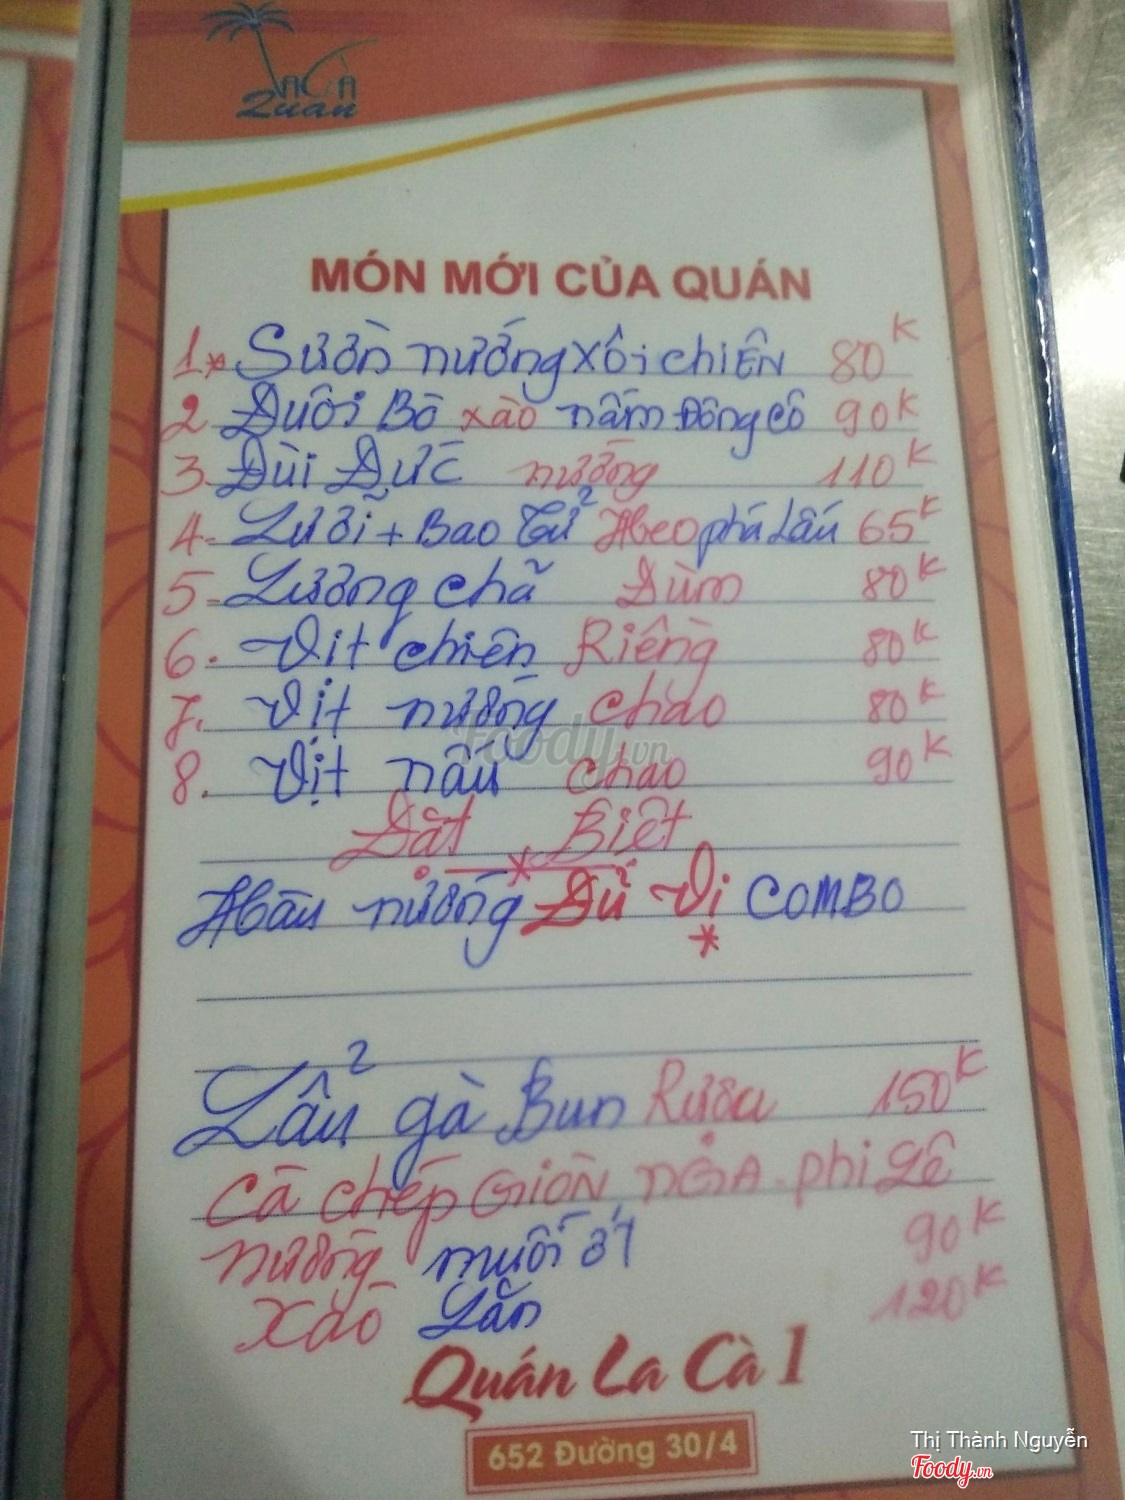 LA CÀ
Quán
MÓN MỚI CỦA QUÁN
1* Sườn nướng xôi chiên 80K
2 Đuôi Bò xào nấm Đông cô 90K
3. Đùi Đực nướng 110K
4. Lưỡi + Bao Tử Heo phá Lấu 65K
5. Lươn chả Đùm 80K
6. Vịt chiên Riềng 80K
7. Vịt nướng chao 80K
8. Vịt nấu chao 90K
Đặt Biệt
Hàu nướng Đủ Vị COMBO
Lẩu gà Bun Rượu 150K
Cá chép Giòn NGA phi Lê
nướng muối ớt 90K
Xào Lăn 120K
Quán La Cà 1
652 Đường 30/4
Foody.vn
Thị Thành Nguyễn
Foody.vn